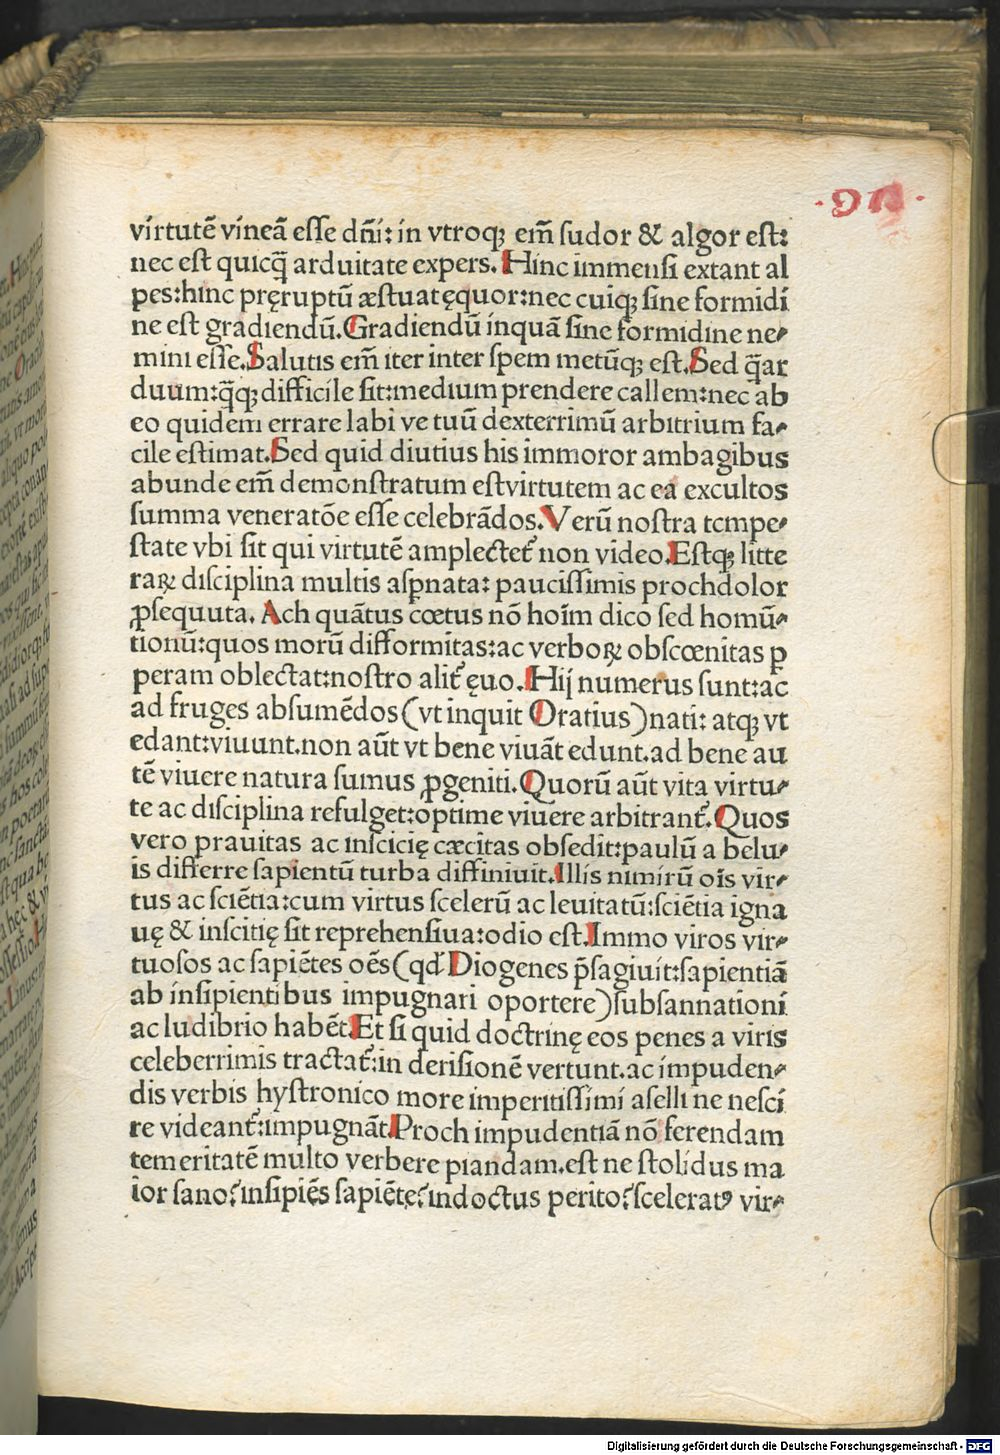 virtutē vineā esse dn̄i: in vtroqꝫ em̄ sudor & algor est:
nec est quicq̄ȝ arduitate expers. Hinc immensi extant al
pes: hinc pręruptū æstuat ęquor: nec cuiqꝫ sine formidi
ne est gradiendū. Gradiendū inquā sine formidine ne⸗
mini esse. Salutis em̄ iter inter spem metūqꝫ est. Sed q̄ȝ ar
duum: q̄ȝqꝫ difficile sit: medium prendere callem: nec ab
eo quidem errare labi ve tuū dexterrimū arbitrium fa⸗
cile estimat. Sed quid diutius his immoror ambagibus
abunde em̄ demonstratum est virtutem ac ea excultos
summa veneratōe esse celebrādos. Verū nostra tempe⸗
state vbi sit qui virtutē amplectet̄ non video. Estqꝫ litte
raꝝ disciplina multis asp̱nata: paucissimis prochdolor
ꝓsequuta. Ach quātus cœtus nō hoīm dico sed homū⸗
tionū: quos morū difformitas: ac verboꝝ obscœnitas ꝑ
peram oblectat: nostro alit̄ ęuo. Hij numerus sunt: ac
ad fruges absumēdos (vt inquit Oratius) nati: atqꝫ vt
edant: viuunt. non aūt vt bene viuāt edunt. ad bene au
tē viuere natura sumus ꝓgeniti. Quorū aūt vita virtu⸗
te ac disciplina refulget: optime viuere arbitrant̄. Quos
vero prauitas ac inscicię cæcitas obsedit: paulū a belu⸗
is differre sapientū turba diffiniuit. Illis nimirū oīs vir⸗
tus ac sciētia: cum virtus scelerū ac leuitatū: sciētia igna
uę & inscitię sit reprehensiua: odio est. Immo viros vir⸗
tuosos ac sapiētes oēs (qd̄ Diogenes p̄sagiuit: sapientiā
ab insipientibus impugnari oportere) subsannationi
ac ludibrio habēt. Et si quid doctrinę eos penes a viris
celeberrimis tractat̄: in derisionē vertunt. ac impuden⸗
dis verbis hystronico more imperitissimi aselli ne nesci
re videant̄: impugnāt. Proch impudentiā nō ferendam
temeritatē multo verbere piandam. est ne stolidus ma
ior sano? insipiēs sapiēte? indoctus perito? sceleratꝰ vir⸗
Digitalisierung gefördert durch die Deutsche Forschungsgemeinschaft - DFG